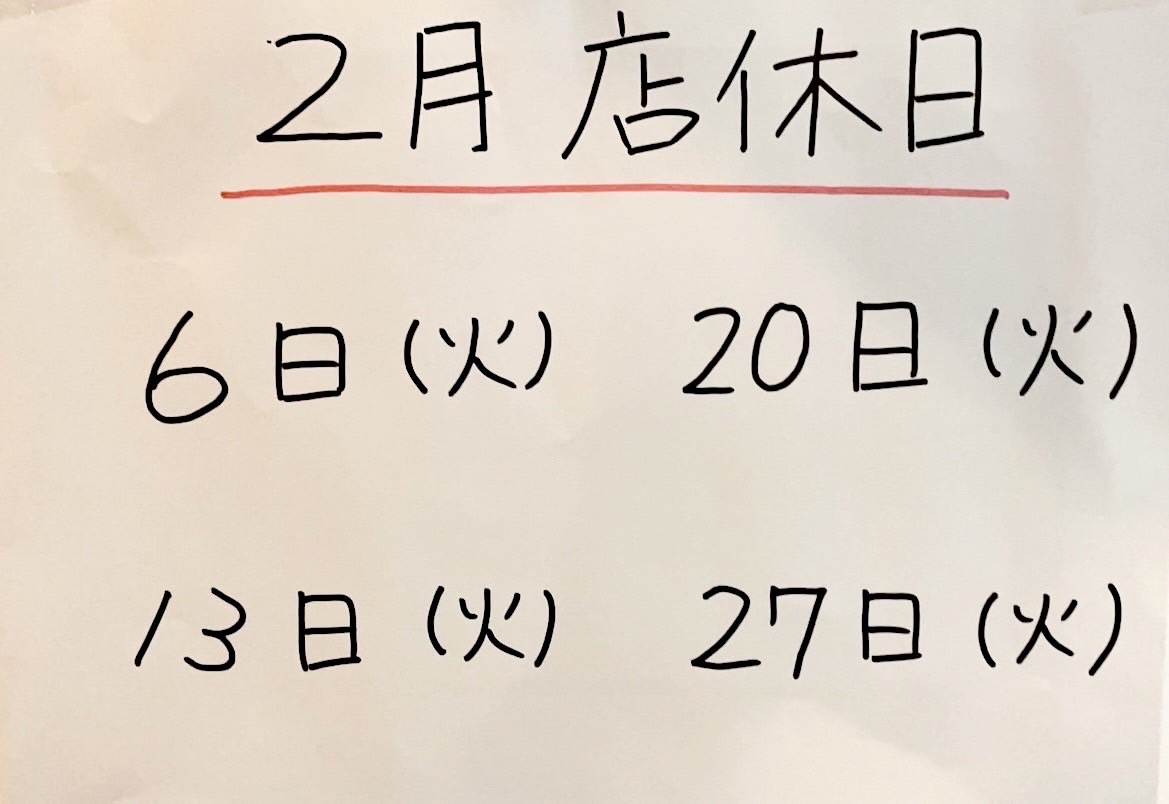 2月 店休日
6日(火) 20日(火)
13日(火) 27日(火)